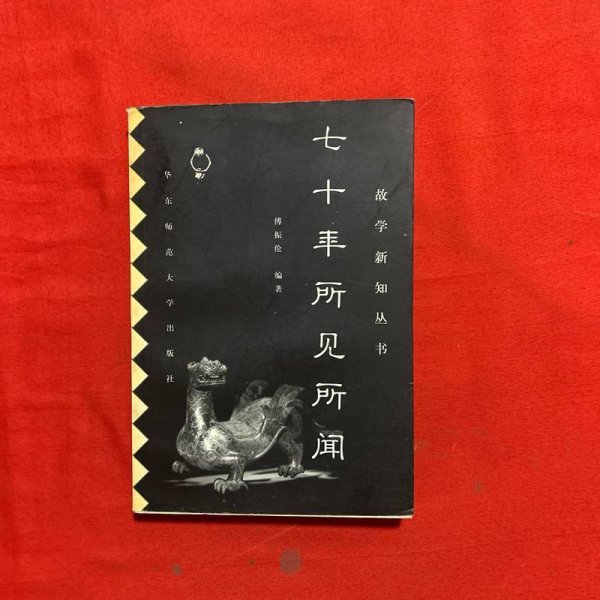 故学新知丛书
七十年所见所闻
傅振伦 编著
华东师范大学出版社